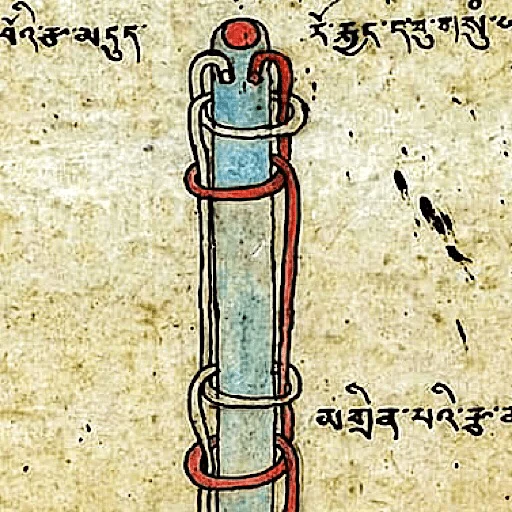 བོའི་རྩ་མདུད་
རོ་རྐྱང་དབུ་གསུཾ་
མགྲིན་པའི་རྩ་